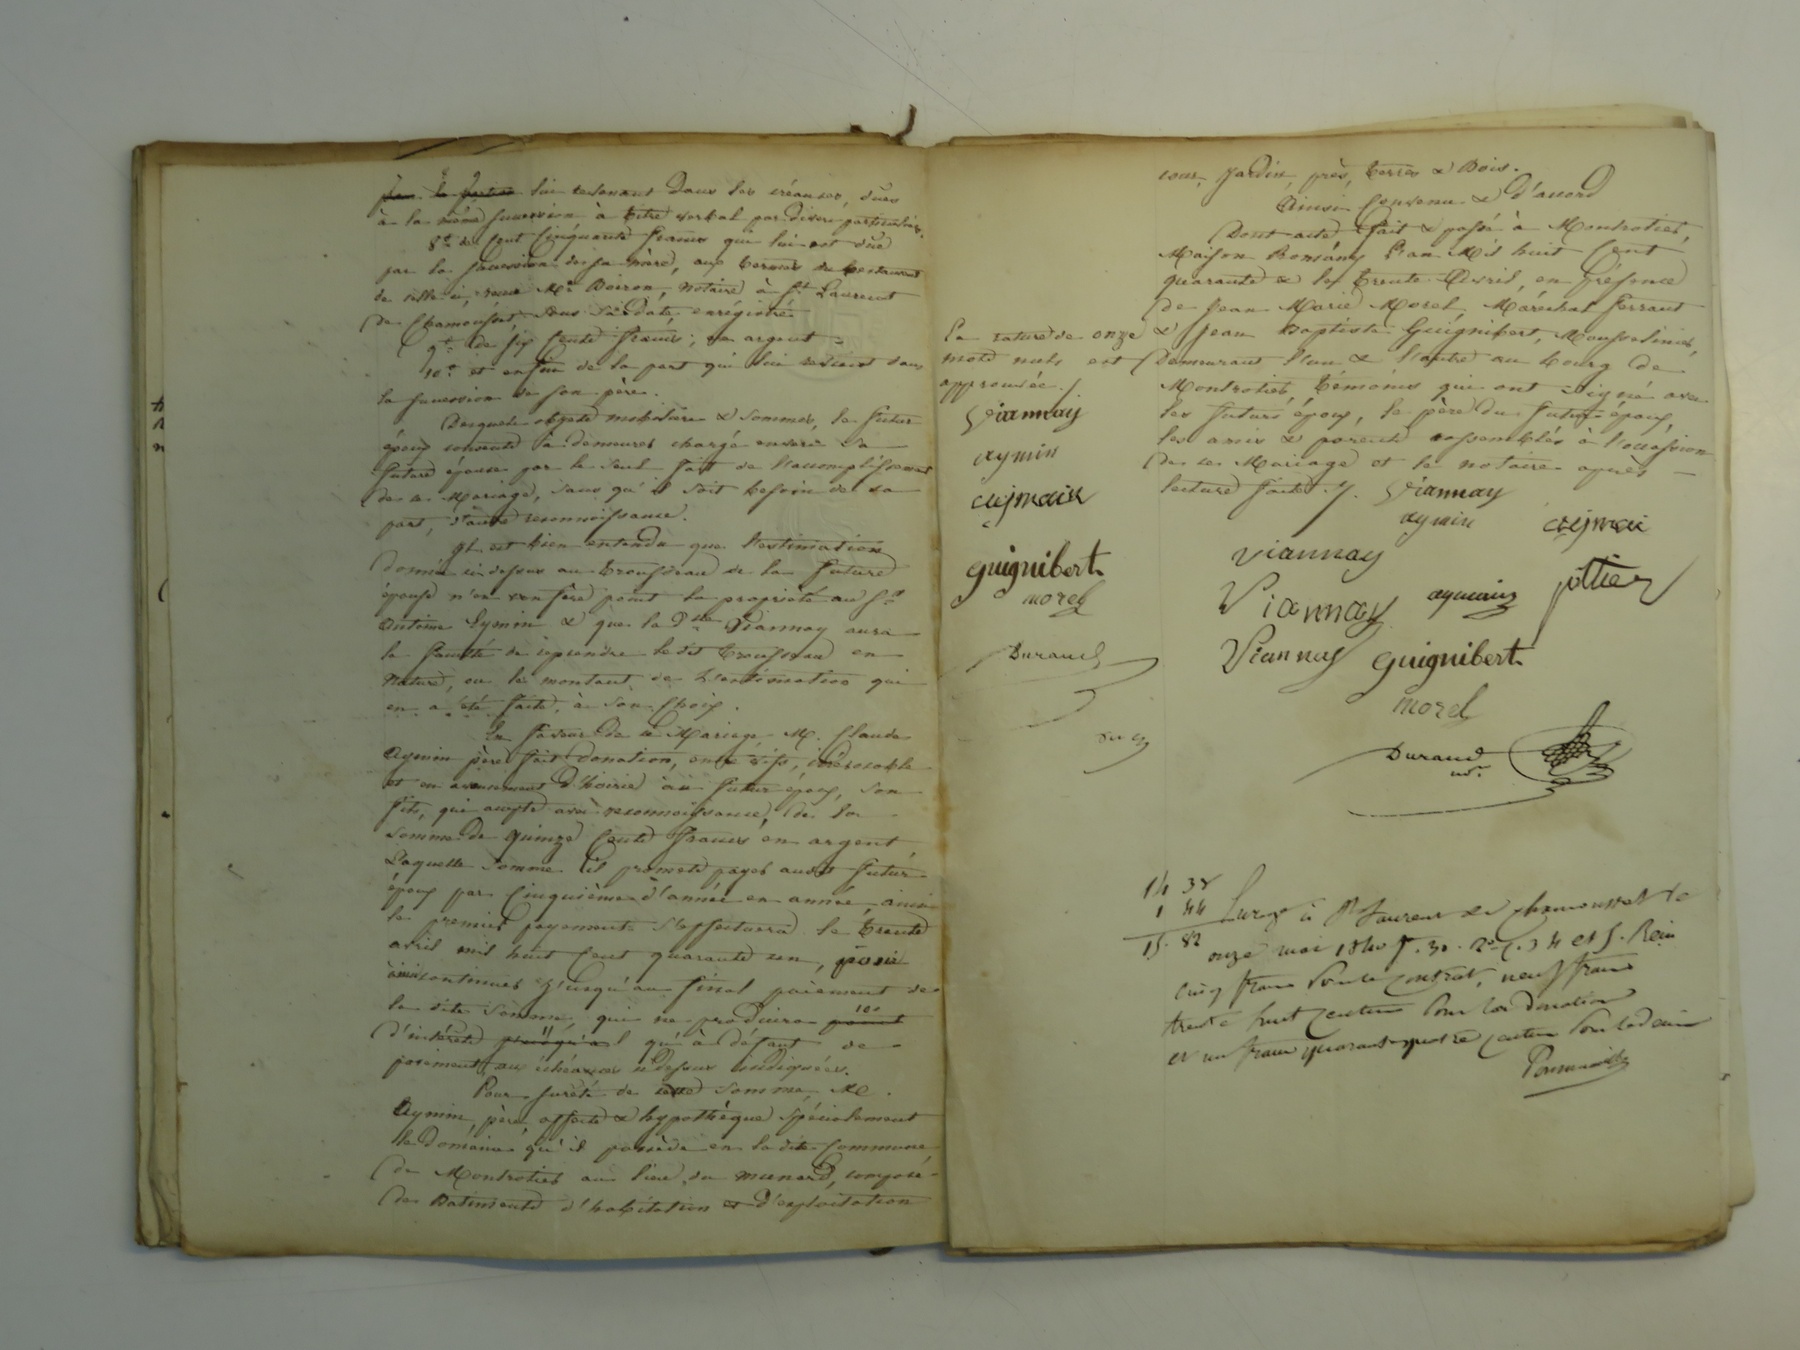 lui revenant dans les créances, dues
à la même succession à titre verbal par divers particuliers.
8° de Cent Cinquante francs qui lui est due
par la succession de sa mère, aux termes du testament
de celle-ci, reçu Me Boiron, Notaire à St Laurent
de Chamousset, sous sa date, enrégistré.
9° de six Cents francs, en argent
10° et enfin de la part qui lui revient dans
la succession de son père.
Desquels objets mobiliers & sommes, le futur
époux consent à demeurer chargé envers sa
future épouse par le seul fait de l'accomplissement
de ce Mariage, sans qu'il soit besoin de sa
part, d'autre reconnoissance.
Il est bien entendu que l'estimation
donnée ci dessus au trousseau de la future
épouse n'en confère point la propriété au Sr
Antoine Aymin & que la Dlle Viannay aura
la faculté de reprendre le dit trousseau en
nature, ou le montant de l'estimation qui
en a été faite, à son choix.
En faveur de ce Mariage, M. Claude
Aymin père fait donation, entre vifs, irrévocable
et en avancement d'hoirie au futur époux, son
fils, qui accepte avec reconnoissance, de la
somme de quinze Cents francs en argent,
Laquelle somme il promet payer audit futur
époux par Cinquième d'année en année, ainsi
le premier payement s'effectuera le trente
avril mil huit Cent quarante un, pour
ainsi continuer jusqu'au final paiement de
la dite somme, qui ne produira point
d'intérêts qu'à défaut de
paiement aux échéances ci dessus indiquées.
Pour sureté de cette somme, M.
Aymin, père, affecte & hypothèque spécialement
le domaine qu'il possède en la dite Commune
de Montrotier au lieu du munard, composé
de Batiments d'habitation & d'exploitation
cour, Jardin, près, terres & Bois.
Ainsi Convenu & d'accord
Dont acte fait & passé à Montrotier,
Maison Romány L'an Mil huit Cent
quarante & le trente Avril, en présence
de Jean Marie Morel, Maréchal ferrant
& Jean Baptiste Guignibert, Mousselinier,
Demeurant l'un & l'autre au bourg de
Montrotier, témoins qui ont signé avec
les futurs époux, le père du futur époux,
les amis & parents rassemblés à l'occasion
de ce Mariage et le notaire après
lecture faite.
La rature de onze
mots nuls est
approuvée.
Viannay
aymin
aymain
guignibert
morel
Durand
Viannay
aymin
aymai
Viannay
Viannay
aymain
pottier
Viannay
guignibert
morel
Durand
nre
14 38
1 44
15. 82
Enreg. à St Laurent de chamousset le
onze mai 1840 f. 30. Ro C. 3 4 et 5. Reçu
cinq francs pour le contrat, neuf francs
trente huit centimes pour la donation
et un franc quarante quatre centimes pour le décime